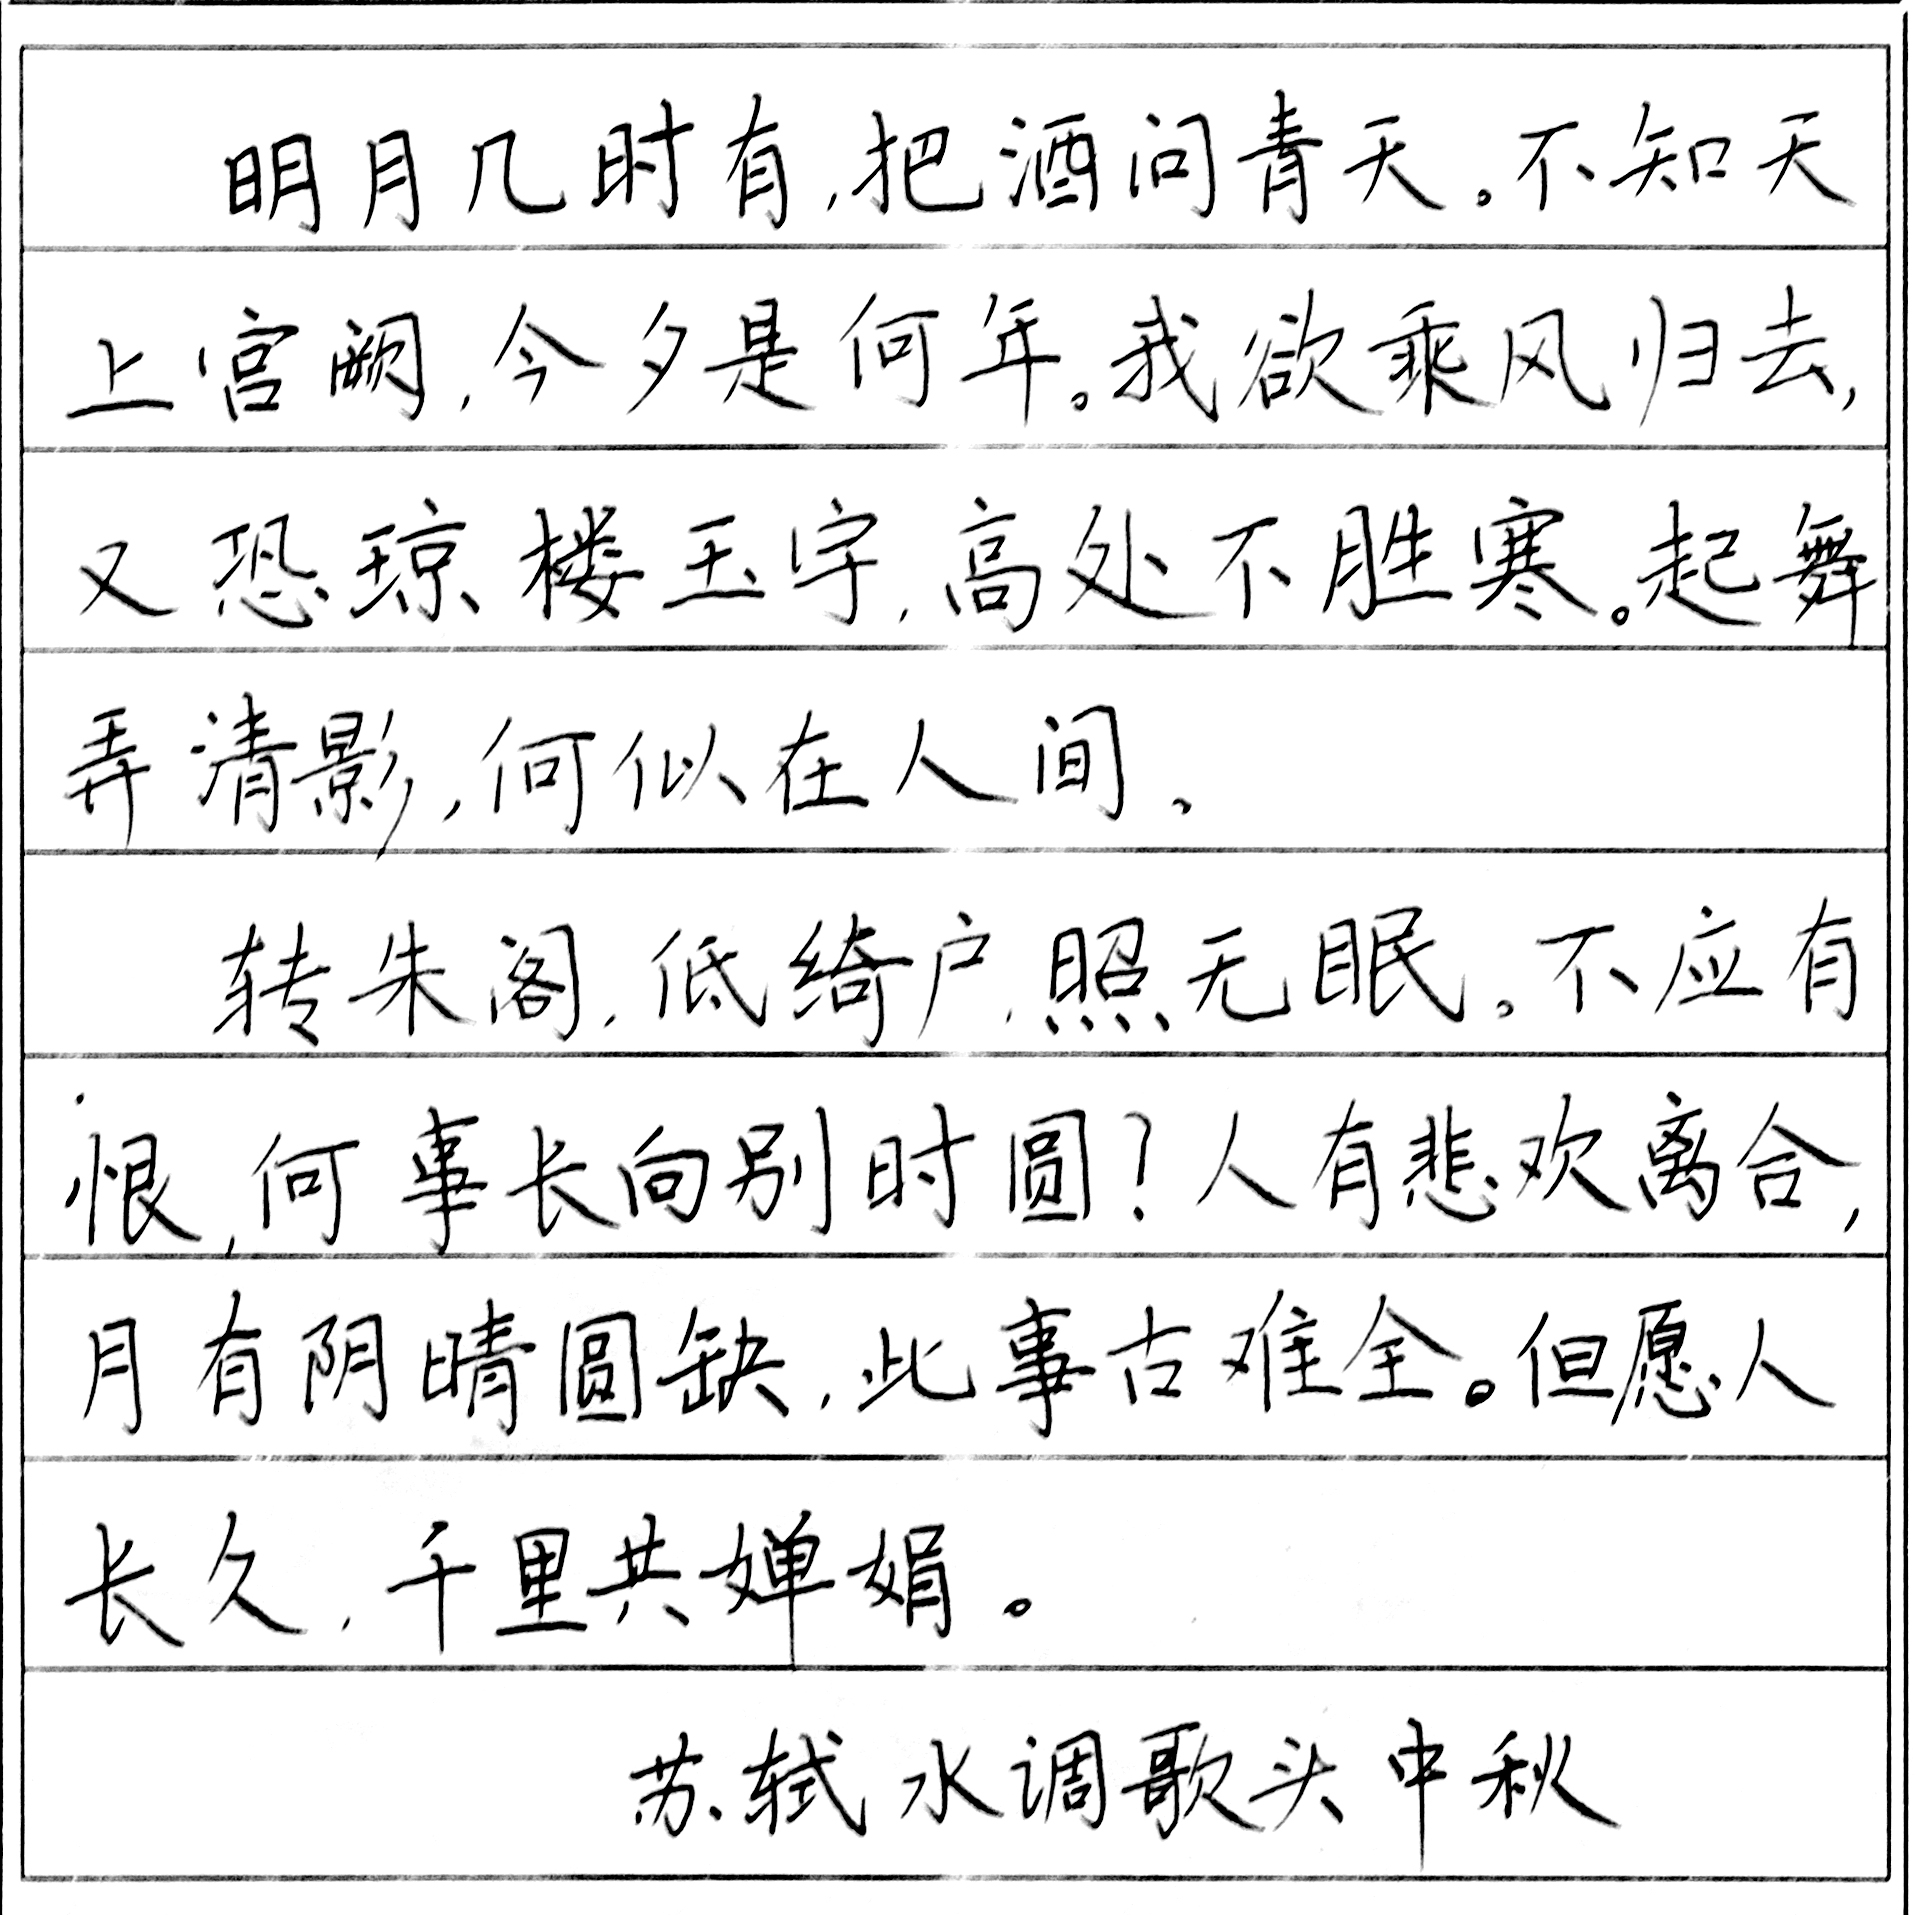 明月几时有,把酒问青天。不知天
上宫阙,今夕是何年。我欲乘风归去,
又恐琼楼玉宇,高处不胜寒。起舞
弄清影,何似在人间。
转朱阁,低绮户,照无眠。不应有
恨,何事长向别时圆?人有悲欢离合,
月有阴晴圆缺,此事古难全。但愿人
长久,千里共婵娟。
苏轼水调歌头中秋